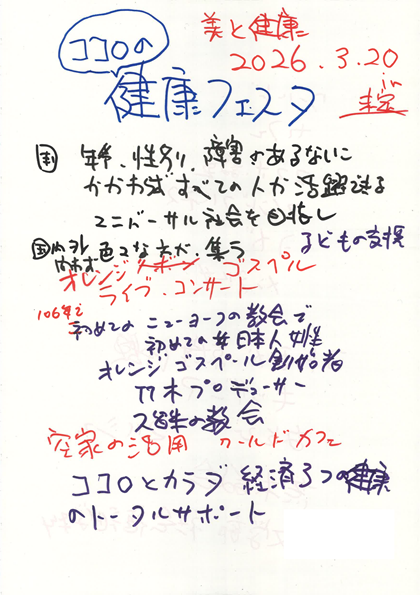 美と健康
ココロの
2026.3.20
健康フェスタ
in
年令、性別、障害があるないに
かかわらず すべての人が活躍できる
ユニバーサル社会を目指し
国内外
色々な方が、集う
子どもの支援
オレンジリボン ゴスペル
ライブ、コンサート
106年で
初めての ニューヨークの教会で
初めての 日本人女性
オレンジ ゴスペル創始者
プロデューサー
の教会
空家の活用 ワールドカフェ
ココロとカラダ 経済3つの健康
のトータルサポート